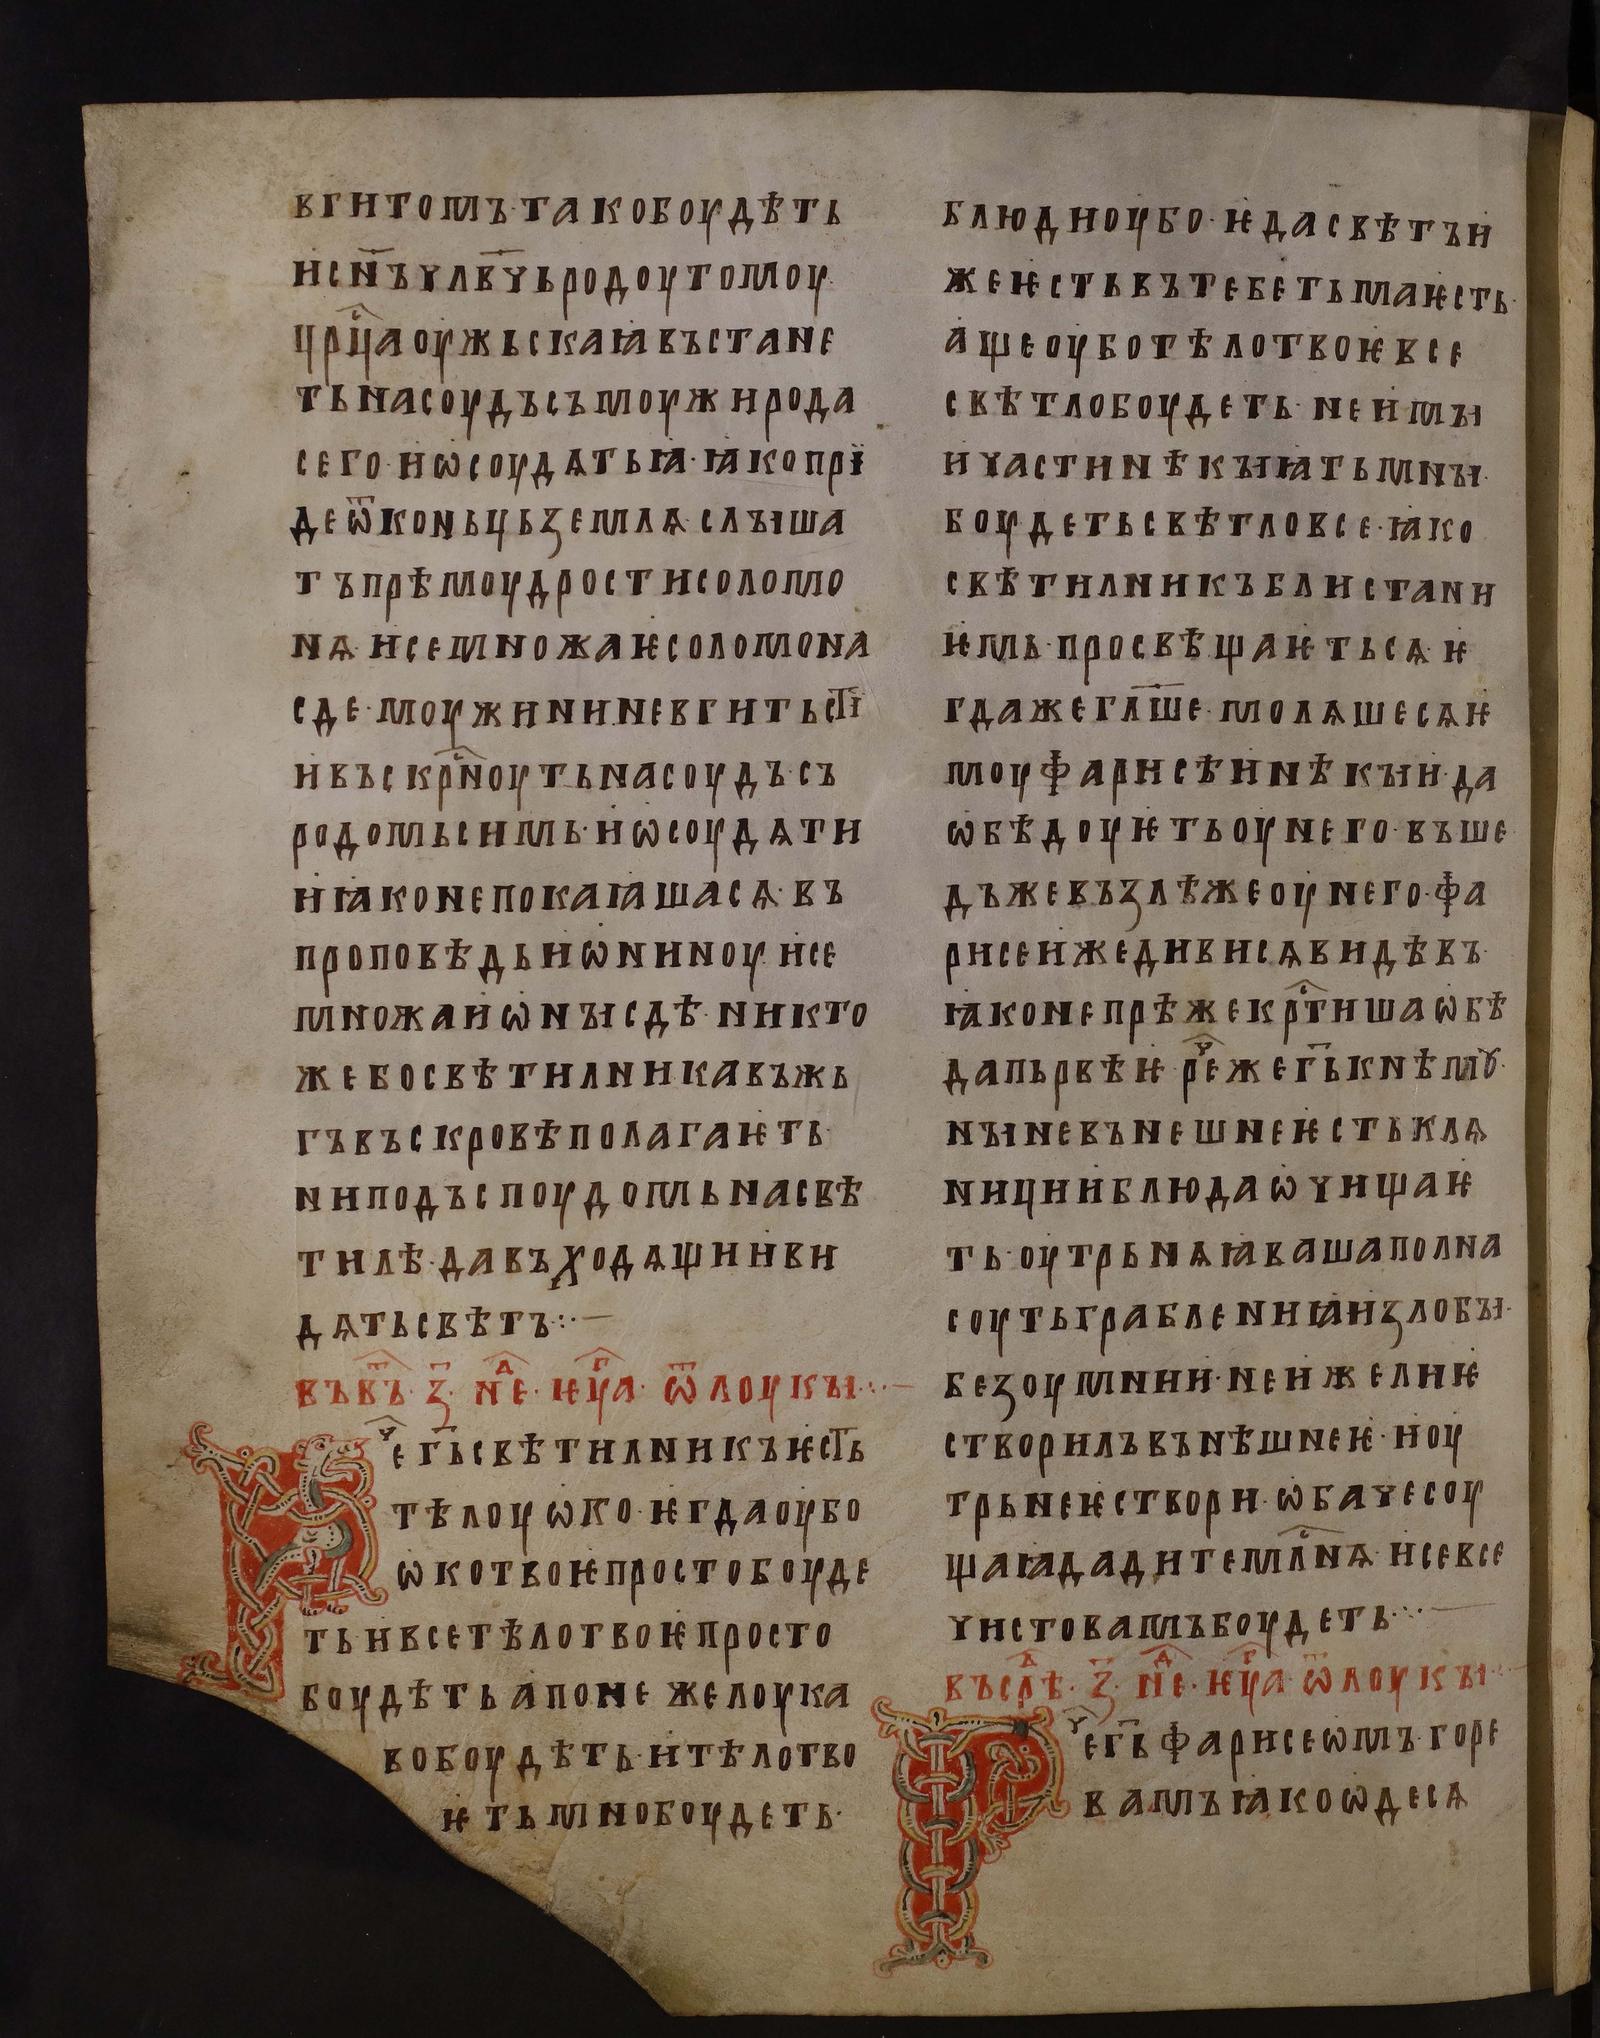 вгитомъ· тако боудѣть
и сн҃ъ члв҃чь родоу томоу·
цр҃ца оужьскаꙗ въстане
ть на соудъ съ моужи рода
сего· и ѡсоудѧть ꙗ· ꙗко прї
де ѿ коньць землѧ слꙑша
тъ прѣмоудрости соломо
нѧ· и се множаѥ соломона
сде· моужи нинневгитьст҃и
и въскрн҃оуть на соудъ· съ
родомь симь· и ѡсоудѧть и
и ꙗко не покаꙗша сѧ· въ
проповѣдь иѡниноу· и се
множаи ѡнꙑ сдѣ· никто
же бо свѣтилника въжь
гъ въ скровѣ полагаѥть·
ни подъ споудомь на свѣ
тилѣ· да въходѧщии ви
дѧть свѣтъ:·—
въ в҃ть· з҃· нед҃· ѥуг҃а· ѿ лоукꙑ:·—
Рече г҃ь свѣтилникъ ѥст҃ь
тѣлоу ѡко· ѥгда оубо
ѡко твоѥ просто боуде
ть и все тѣло твоѥ просто
боудѣть а понеже лоука
во боудѣть· и тѣло тво
ѥ тьмно боудеть·
блюди оубо· ѥда свѣтъ и
же ѥсть въ тебе тьма ѥсть·
аще оубо тѣло твоѥ все
свѣтло боудеть· не имꙑ
и части нѣкꙑꙗ тьмнꙑ·
боудеть свѣтло все· ꙗко
свѣтилникъ блистани
ѥмь· просвѣщаѥть сѧ ѥ
гда же гл҃ше· молѧше сѧ ѥ
моу фарисѣи нѣкꙑи· да
ѡбѣдоуѥть оу него· въше
дъ же възлѣже оу него· фа
рисеи же диви сѧ видѣвъ·
ꙗко не прѣже крт҃иша ѡбѣ
да пьрвѣѥ· реч҃е же г҃ь к нѣмꙋ·
нꙑне вънешнеѥ сть клѧ
ници и блюда ѡчищаѥ
ть· оутрьнѧꙗ ваша полна
соуть грабленниꙗ и злобꙑ·
безоумнии· не иже ли ѥ
створилъ вънѣшнеѥ· и оу
трьнеѥ створи· ѡбаче соу
щаꙗ дадите млс҃нѧ· и се все
чисто вамъ боудеть·:·—
въ срд҃ѣ· з҃· нед҃· ѥуг҃а· ѿ лоукꙑ·:·—
Рече г҃ь фарисеѡмъ· горе
вамъ ꙗко ѡдесѧ